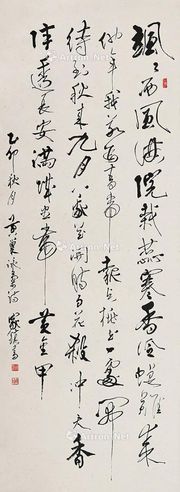 颯々西風滿院栽蕊寒香冷蝶難來
他年我若為青帝報與桃花一處開
待到秋來九月八我花開後百花殺沖天香
陣透長安滿城盡帶黄金甲
乙卯秋月黄巢詠菊詩